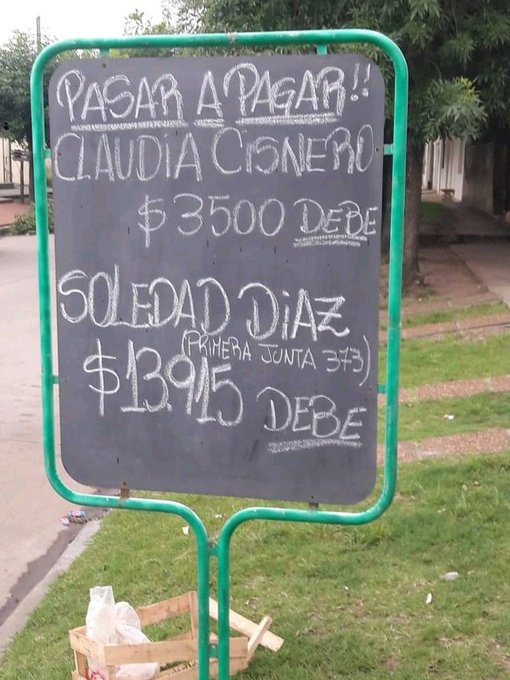 PASAR A PAGAR!!
CLAUDIA CISNERO
$3500 DEBE
SOLEDAD DiAZ
(PRIMERA JUNTA 373)
$13.915 DEBE